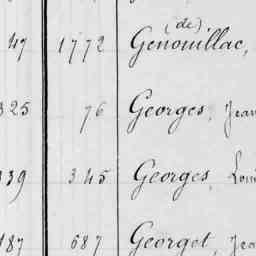 (de)
47 1772 Genouillac,
325 76 Georges, Jean
339 345 Georges, Loui
187 687 Georget, Jea